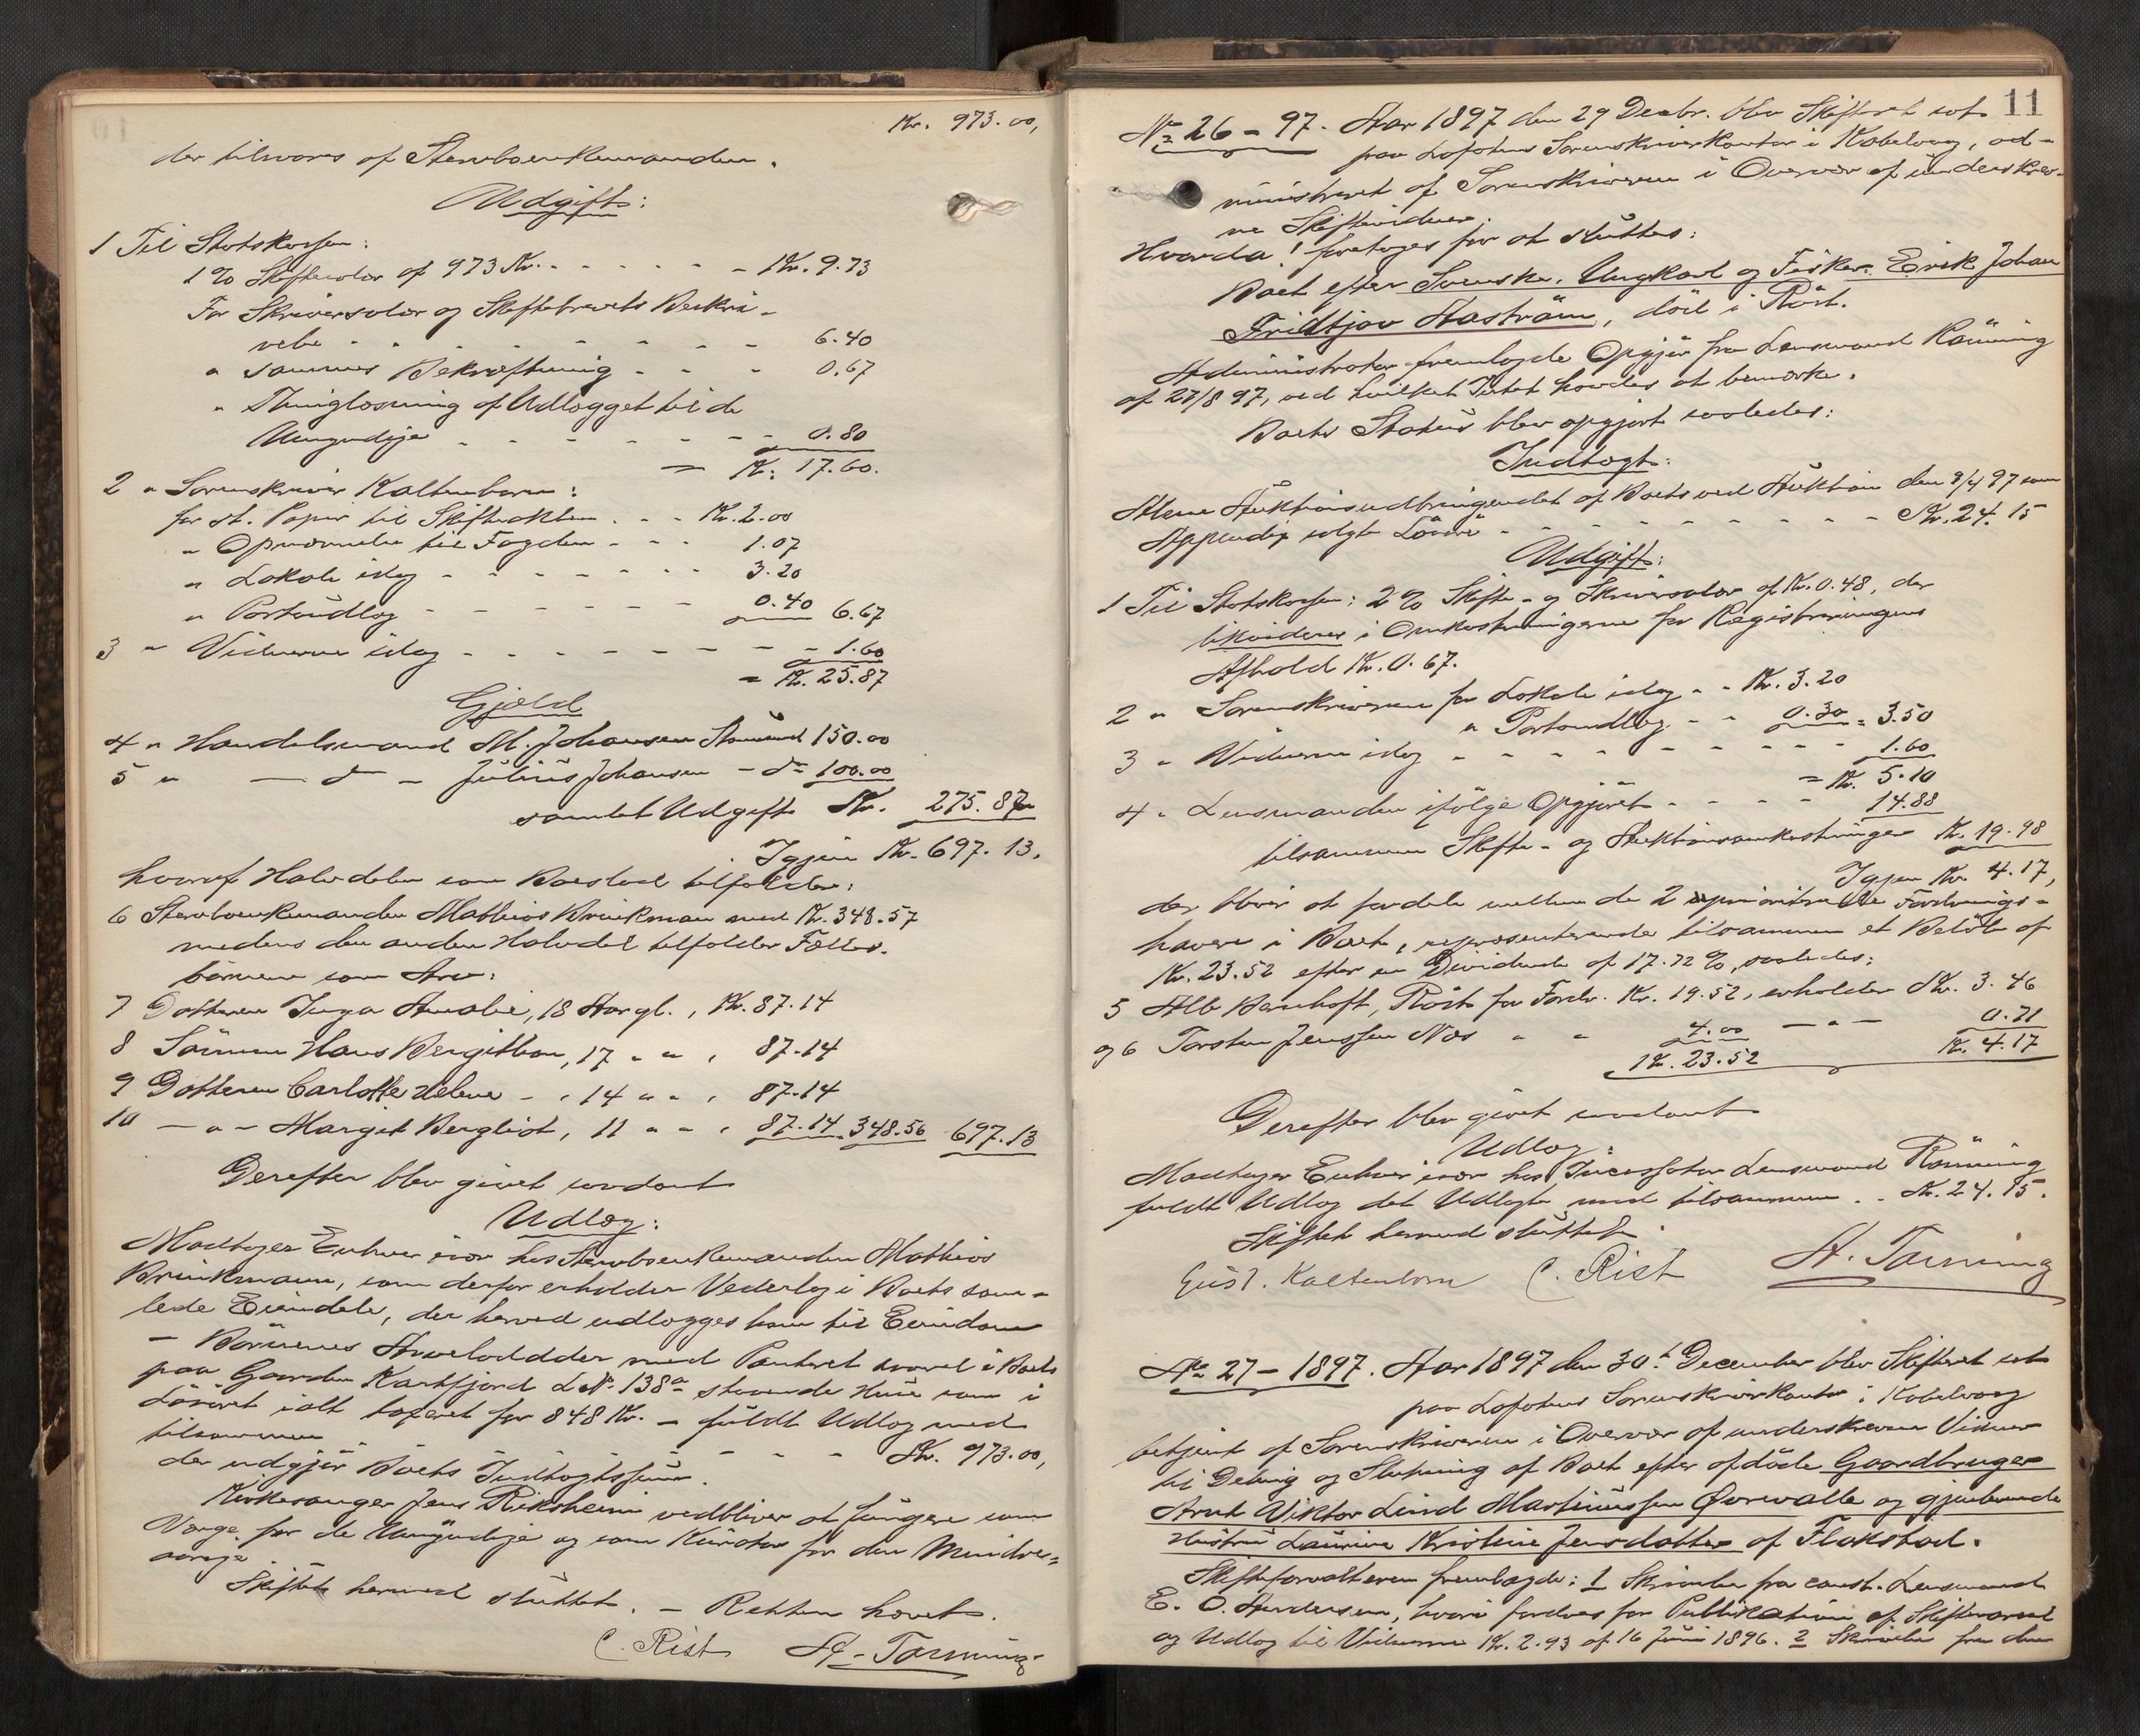 Kr. 973.00,
der tilsvares af Stervboenkemanden.
Udgift:
1 Til Statskassen:
1% Skiftesalær af 973 Kr. - - - - - - Kr. 9.73
For Skriversalær og Skiftebrevets Beskri-
velse - - - - - - - - 6.40
" sammes Bekræftning - - - 0.67
" Thinglæsning af Udlægget til de
Umyndige - - - - - - - 0.80
= Kr. 17.60.
2 " Sorenskriver Kaltenborn:
for st. Papir til Skifteakten - - - Kr. 2.00
" Opnævnelse til Fogden - - - 1.07
" Lokale idag - - - - - - - 3.20
" Portoudlæg - - - - - - - 0.40 6.67
3 " Vidnerne idag - - - - - - - - 1.60
= Kr. 25.87
Gjæld
4 " Handelsmand M. Johansen Stamsund 150.00
5 " — d — Julius Johansen — do 100.00
samlet Udgift Kr. 275.87
Igjen Kr. 697.13.
hvoraf Halvdelen som Boeslod tilfalder:
6 Stervboenkemanden Mathias Brinkman med Kr. 348.57
medens den anden Halvdel tilfalder Fælles-
børnene som Arv:
7 Datteren Inga Amalie, 18 Aar gl., Kr. 87.14
8 Sønnen Hans Bergithon, 17 " " , 87.14
9 Datteren Carlotte Helene - , 14 " " , 87.14
10 — " — Margit Bergliot, 11 " " , 87.14 348.56 697.13
Derefter blev givet saadant
Udlæg:
Modtager Enhver især hos Stervboenkemanden Mathias
Brinkmann, som derfor erholder Vederlag i Boets sam-
lede Eiendele, der herved udlægges ham til Eiendom
— Børnenes Arvelodder med Panteret saavel i Boets
paa Gaarden Kartfjord L.No. 138a staaende Huse som i
Løsøret ialt taxeret for 848 Kr. — fuldt Udlæg med
tilsammen - - - - - - Kr. 973.00,
der udgjør Boets Indtægtssum.
Kirkesanger Jens Riksheim vedbliver at fungere som
Værge for de Umyndige og som Kurator for den Mindre-
aarige
Skiftet hermed sluttet. — Retten hævet.
C. Rist A. Tarning
11
No 26 - 97. Aar 1897 den 29 Decbr. blev Skifteret sat
paa Lofotens Sorenskriverkontor i Kabelvaag, ad-
ministreret af Sorenskriveren i Overvær af underskrev-
ne Skiftevidner.
Hvorda! foretoges for at sluttes:
Boet efter Svenske, Ungkarl og Fisker Erik Johan
Fridtjov Haström, död i Röst.
Administrator fremlagde Opgjör fra Lensmand Rönning
af 27/8 97, ved hvilket Intet havdes at bemærke.
Boets Status blev opgjort saaledes:
Indtægt:
Alene Auktionsudbringendet af Boets ved Auktion den 9/4 97 som
Appendix solgte Lösöre - - - - - - - - - - Kr. 24.15
Udgift:
1 Til Statskassen: 2% Skifte- og Skriversalær af Kr. 0.48, der
likvideres i Omkostningerne for Registreringens
Afhold Kr. 0.67.
2 " Sorenskriveren for Lokale idag - - Kr. 3.20
" Portoudlæg - - 0.30 = 3.50
3 " Vidnerne idag - - - - - - - - - 1.60
= Kr. 5.10
4 " Lensmanden ifölge Opgjöret - - - - - 14.88
tilsammen Skifte- og Auktionsomkostninger Kr. 19.98
Igjen Kr. 4.17,
der bliver at fordele mellem de 2 uprioriterede Fordrings-
havere i Boet, repræsenterende tilsammen et Belöb af
Kr. 23.52 efter en Dividende af 17.72%, saaledes:
5 Alb. Benhoft, Röst for Fordr. Kr. 19.52, erholder Kr. 3.46
og 6 Torsten Jenssen Næs " " 4.00 — " — 0.71
Kr. 23.52 Kr. 4.17
Derefter blev givet saadant
Udlæg:
Modtager Enhver især hos Incassator Lensmand Rönning
fuldt Udlæg det Udlagte med tilsammen - - Kr. 24.15.
Skiftet hermed sluttet.
Gust. Kaltenborn C. Rist A. Tarning
No 27 - 1897. Aar 1897 den 30te December blev Skifteret sat
paa Lofotens Sorenskriverkontor i Kabelvaag
betjent af Sorenskriveren i Overvær af underskrevne Vidner
til Deling og Slutning af Boet efter afdöde Gaardbruger
Arnt Viktor Lind Martinussen Qvervatte og gjenlevende
Hustru Laurine Kristine Jensdatter af Flakstad.
Skifteforvalteren fremlagde: 1 Skrivelse fra const. Lensmand
E. O. Andersen, hvori fordres for Publikation af Skiftevarsel
og Udlæg til Vidnerne Kr. 2.93 af 16 Juni 1896. 2 Skrivelse fra den